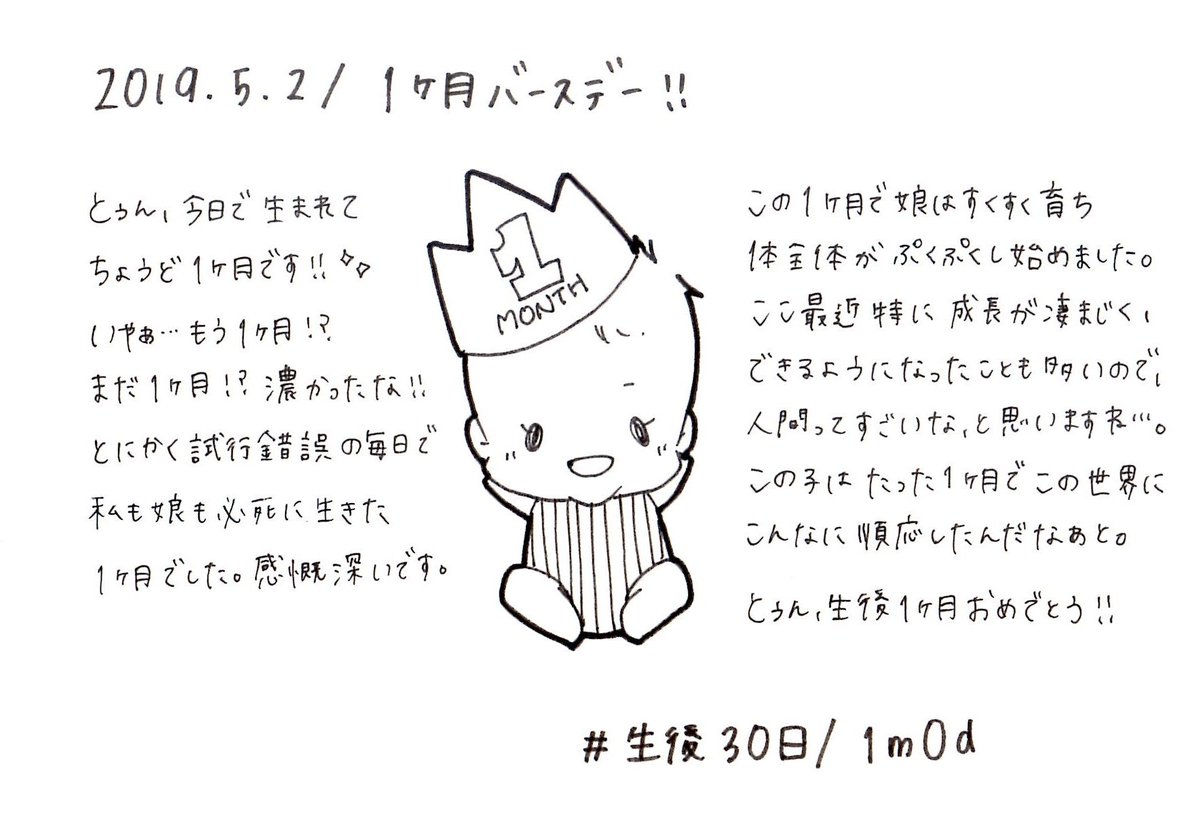 2019.5.2/ 1ヶ月バースデー!!
とぅん、今日で生まれて
ちょうど1ヶ月です!!
いやぁ…もう1ヶ月!?
まだ1ヶ月!?濃かったな!!
とにかく試行錯誤の毎日で
私も娘も必死に生きた
1ヶ月でした。感慨深いです。
1
MONTH
この1ヶ月で娘はすくすく育ち
体全体がぷくぷくし始めました。
ここ最近特に成長が凄まじく、
できるようになったことも多いので、
人間ってすごいな、と思いますね…。
この子はたった1ヶ月でこの世界に
こんなに順応したんだなぁと。
とぅん、生後1ヶ月おめでとう!!
#生後30日/ 1m0d